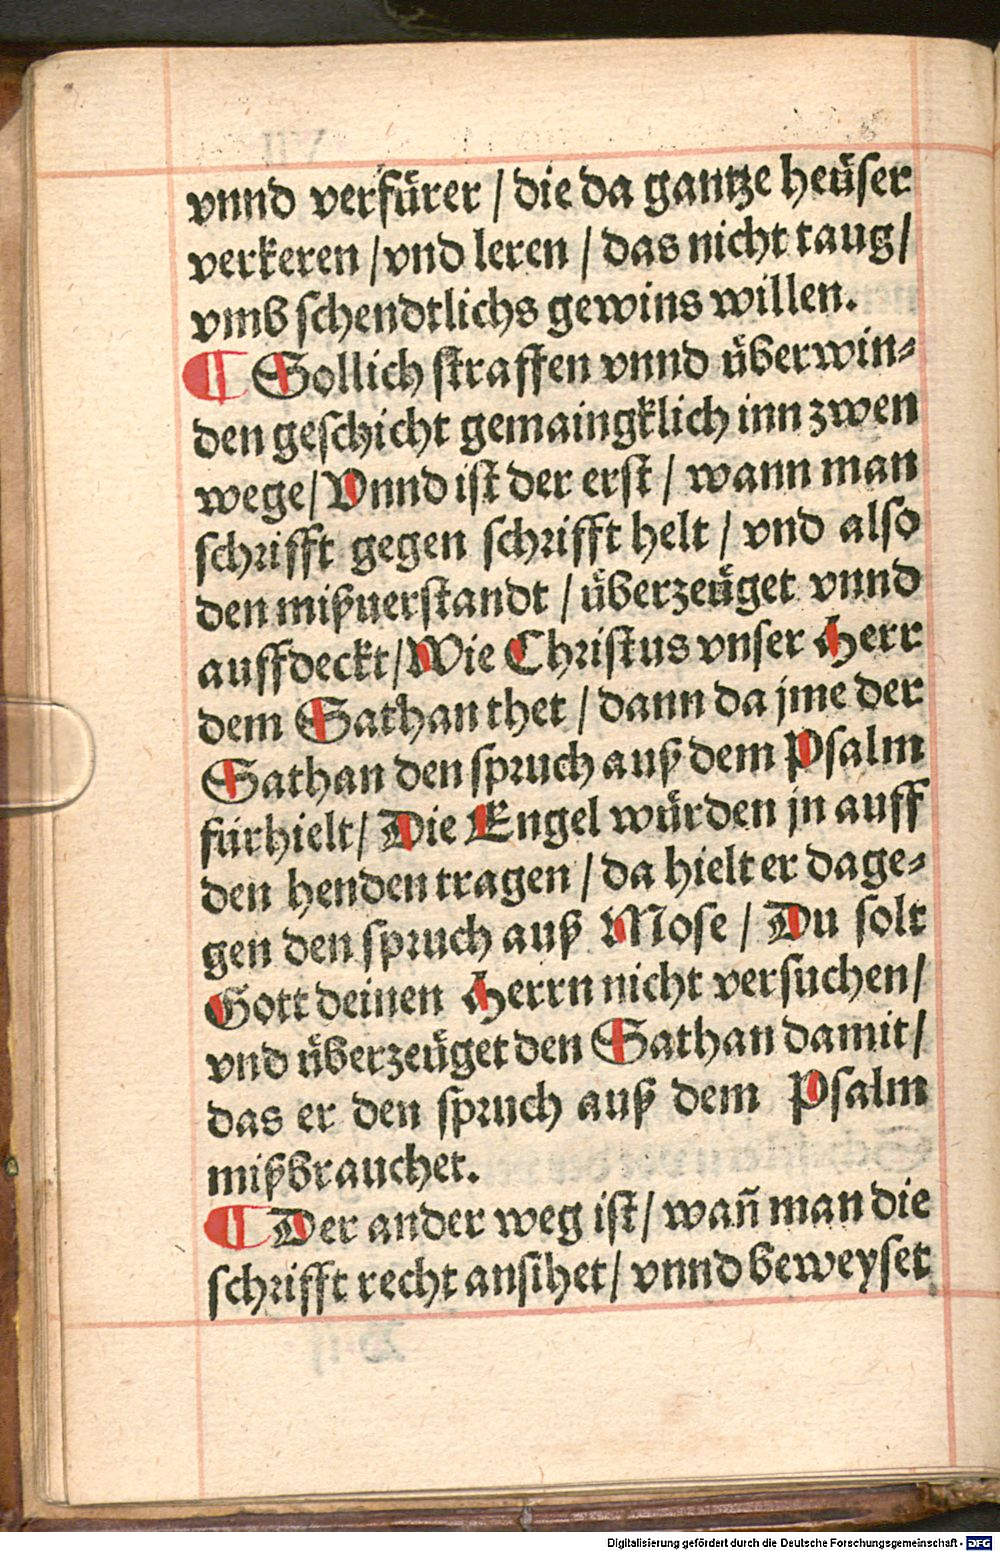 vnnd verfürer / die da gantze heüser
verkeren / vnd leren / das nicht taug /
vmb schendtlichs gewins willen.
¶ Sollich straffen vnnd überwin⸗
den geschicht gemaingklich inn zwen
wege / Vnnd ist der erst / wann man
schrifft gegen schrifft helt / vnd also
den mißuerstandt / überzeüget vnnd
auffdeckt / Wie Christus vnser Herr
dem Sathan thet / dann da jme der
Sathan den spruch auß dem Psalm
fürhielt / Die Engel würden jn auff
den henden tragen / da hielt er dage⸗
gen den spruch auß Mose / Du solt
Gott deinen Herrn nicht versuchen /
vnd überzeüget den Sathan damit /
das er den spruch auß dem Psalm
mißbrauchet.
¶ Der ander weg ist / wañ man die
schrifft recht ansihet / vnnd beweyset
Digitalisierung gefördert durch die Deutsche Forschungsgemeinschaft - DFG